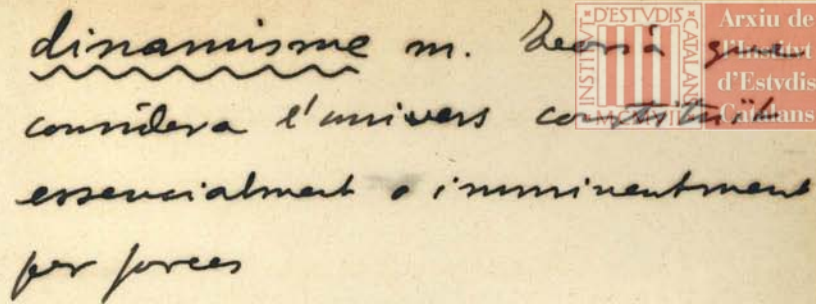 dinamisme m. Teoria que
considera l'univers constituït
essencialment o imminentment
per forces
INSTITVT D'ESTVDIS CATALANS
MCMVII
Arxiu de
l'Institvt
d'Estvdis
Catalans